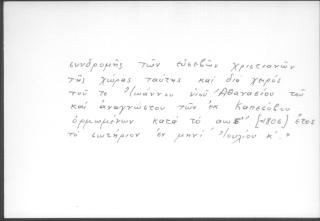 συνδρομῆς τῶν εὐσεβῶν χριστιανῶν
τῆς χώρας ταύτης καὶ διὰ χειρός
τοῦ τε Ἰωάννου υἱοῦ Ἀθανασίου τοῦ
καὶ ἀναγνώστου τῶν ἐκ Καπεσόβου
ὁρμωμένων κατὰ τὸ αωϛ' [=1806] ἔτος
τὸ σωτήριον ἐν μηνί Ἰουλίου κ'."